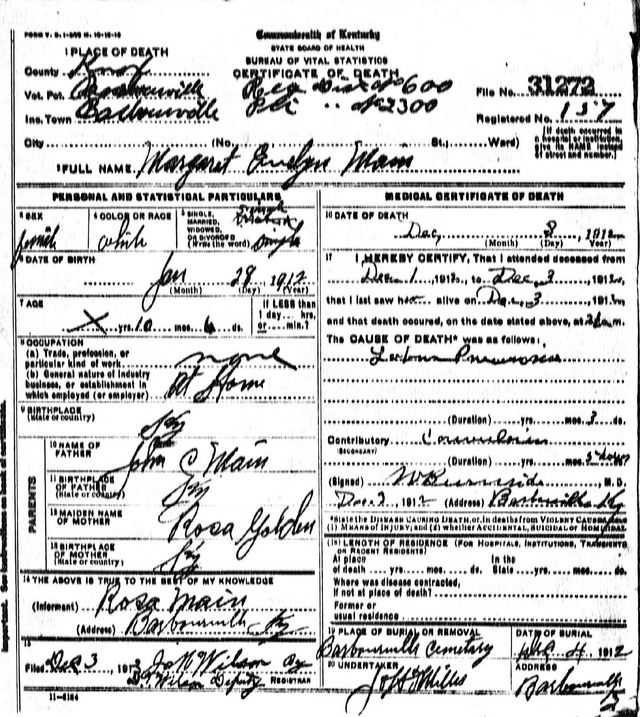 FORM V. S. 1
Commonwealth of Kentucky
STATE BOARD OF HEALTH
BUREAU OF VITAL STATISTICS
CERTIFICATE OF DEATH
1 PLACE OF DEATH
County Knox
Vot. Pct. Barbourville
Reg Dist No 600
File No. 31272
Inc. Town Barbourville
Pri " No 2300
Registered No. 157
City (No. St.; Ward)
[If death occurred in
a hospital or institution,
give its NAME instead
of street and number.]
2 FULL NAME Margaret Evelyn Main
PERSONAL AND STATISTICAL PARTICULARS
3 SEX
female
4 COLOR OR RACE
white
5 SINGLE,
MARRIED,
WIDOWED,
OR DIVORCED
(Write the word) single
6 DATE OF BIRTH
Jan 28 1912
(Month) (Day) (Year)
7 AGE
X yrs. 10 mos. 6 ds.
If LESS than
1 day.... hrs.
or.... min.?
8 OCCUPATION
(a) Trade, profession, or
particular kind of work none
(b) General nature of industry
business, or establishment in
which employed (or employer) At Home
9 BIRTHPLACE
(State or country)
Ky
PARENTS
10 NAME OF
FATHER
John C Main
11 BIRTHPLACE
OF FATHER
(State or country)
Ky
12 MAIDEN NAME
OF MOTHER
Rosa Golden
13 BIRTHPLACE
OF MOTHER
(State or country)
Ky
14 THE ABOVE IS TRUE TO THE BEST OF MY KNOWLEDGE
(Informant) Rosa Main
(Address) Barbourville Ky
15
Filed Dec 3 1912 Wilson
Wilson Deputy REGISTRAR
11-6184
MEDICAL CERTIFICATE OF DEATH
16 DATE OF DEATH
Dec 3, 1912
(Month) (Day) (Year)
17 I HEREBY CERTIFY, That I attended deceased from
Dec 1, 1912, to Dec. 3, 1912,
that I last saw h alive on Dec. 3, 1912,
and that death occured, on the date stated above, at m.
The CAUSE OF DEATH* was as follows:
Lobar Pneumonia
(Duration) yrs. mos. 3 ds.
Contributory Convulsions
(SECONDARY)
(Duration) yrs. mos. 5 hours
(Signed) W Burnside, M. D.
Dec 3, 1912 (Address) Barbourville Ky
*State the DISEASE CAUSING DEATH, or, in deaths from VIOLENT CAUSES, state
(1) MEANS OF INJURY; and (2) whether ACCIDENTAL, SUICIDAL or HOMICIDAL
18 LENGTH OF RESIDENCE (FOR HOSPITALS, INSTITUTIONS, TRANSIENTS
OR RECENT RESIDENTS)
At place In the
of death.... yrs..... mos..... ds. State.... yrs..... mos..... ds.
Where was disease contracted,
if not at place of death?
Former or
usual residence
19 PLACE OF BURIAL OR REMOVAL
Barbourville Cemetary
DATE OF BURIAL
Dec 4, 1912
20 UNDERTAKER
ADDRESS
Barbourville
Ky